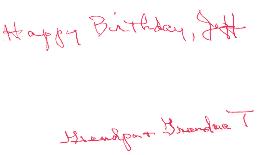 Happy Birthday, Jeff
Grandpa + Grandma T